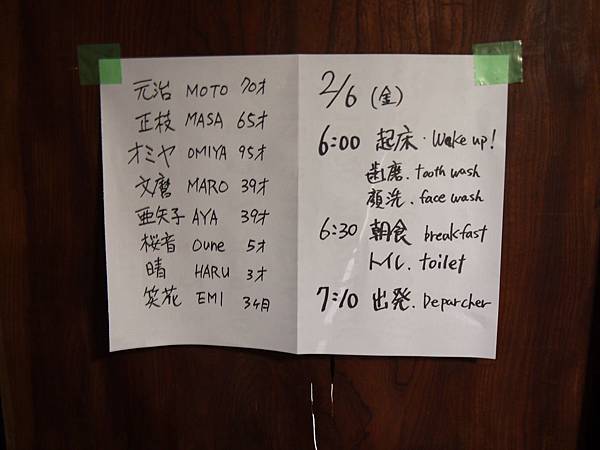 元治 MOTO 70才
正枝 MASA 65才
オミヤ OMIYA 95才
文麿 MARO 39才
亜矢子 AYA 39才
桜音 Oune 5才
晴 HARU 3才
笑花 EMI 3ヶ月
2/6 (金)
6:00 起床・Wake up!
歯磨.tooth wash
顔洗.face wash
6:30 朝食 breakfast
トイレ.toilet
7:10 出発.Deparcher